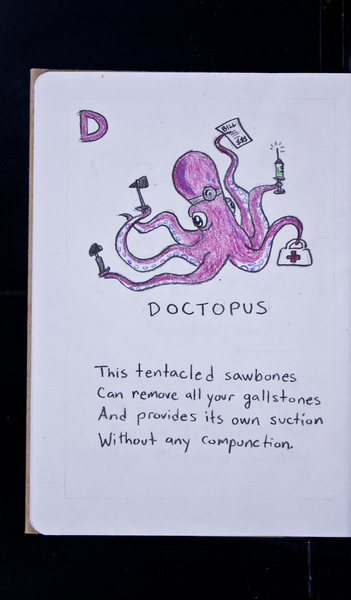 D
BILL
DOCTOPUS
This tentacled sawbones
Can remove all your gallstones
And provides its own suction
Without any compunction.